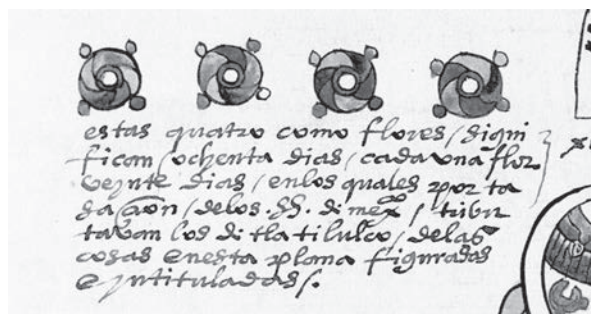 estas quatro como flores / signi
fican / ochenta dias / cada una flor
veynte dias / en los quales por ta
sacion / delos .SS. de mexº / tribu
tavan los de tlatilulco / delas
cosas enesta plana figuradas
e yntituladas /.